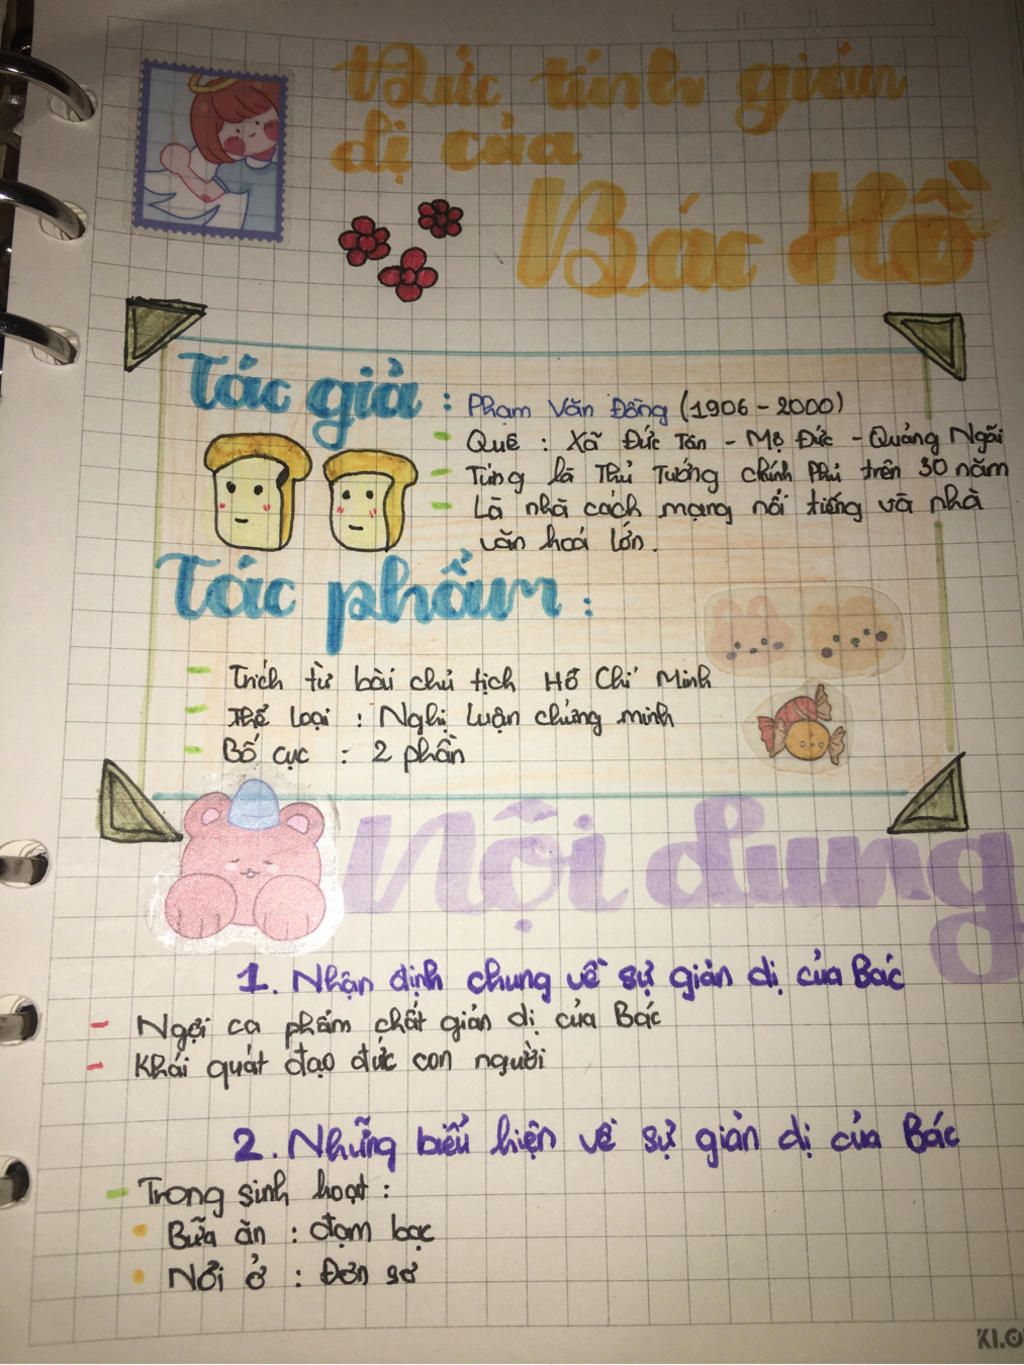 Đức tính giản
dị của
Bác Hồ
Tác giả : Phạm Văn Đồng (1906 - 2000)
- Quê : Xã Đức Tân - Mộ Đức - Quảng Ngãi
- Từng là Thủ Tướng chính Phủ trên 30 năm
- Là nhà cách mạng nổi tiếng và nhà
văn hoá lớn.
Tác phẩm :
- Trích từ bài chủ tịch Hồ Chí Minh
- Thể loại : Nghị luận chứng minh
- Bố cục : 2 phần
Nội dung
1. Nhận định chung về sự giản dị của Bác
- Ngợi ca phẩm chất giản dị của Bác
- Khái quát đạo đức con người
2. Những biểu hiện về sự giản dị của Bác
- Trong sinh hoạt :
• Bữa ăn : đạm bạc
• Nơi ở : Đơn sơ